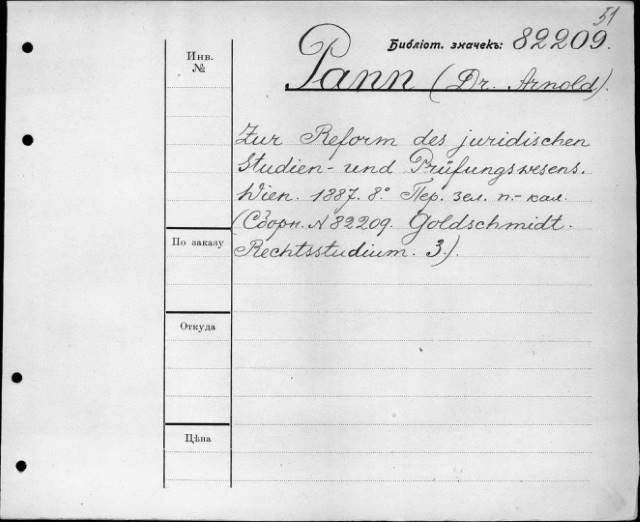 51
Библіот. значекъ: 82209.
Инв. №
Pann (Dr. Arnold).
Zur Reform des juridischen
Studien- und Prüfungswesens.
Wien. 1887. 8° Пер. зел. п.- кал.
(Сборн. N 82209. Goldschmidt.
По заказу
Rechtsstudium. 3.).
Откуда
Цѣна